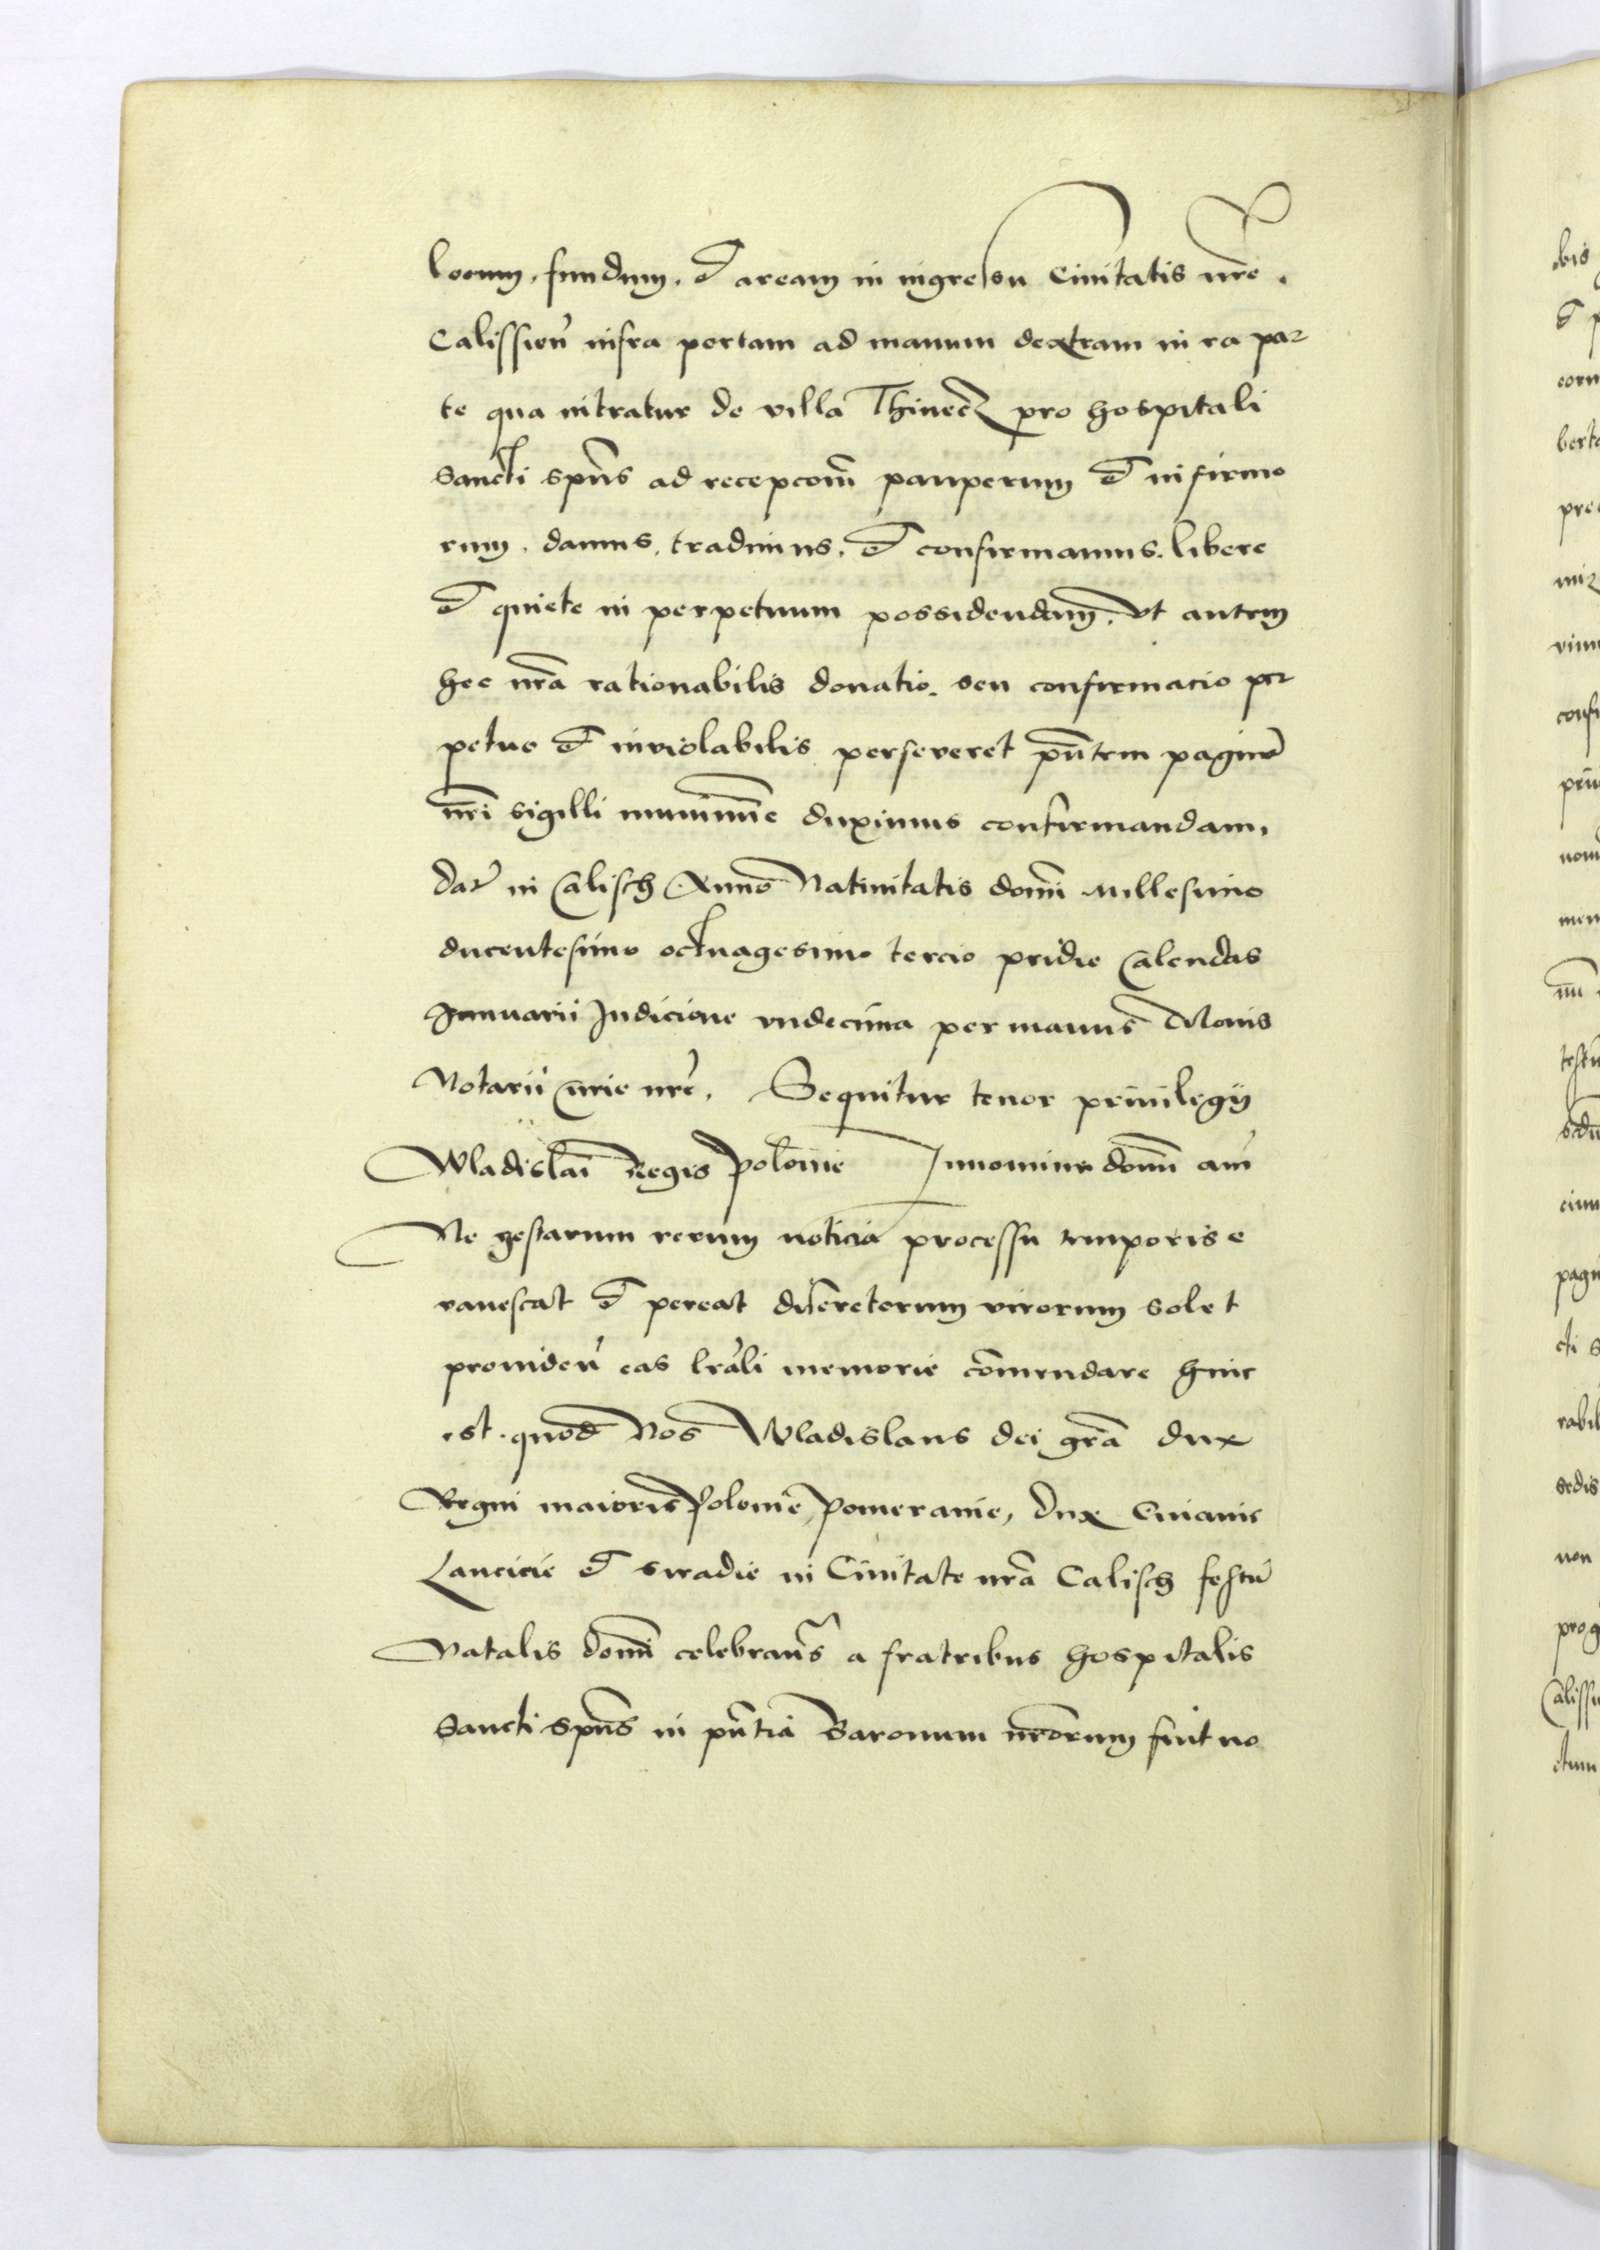 locum, fundum, et aream in ingressu Ciuitatis nr̄e.
Calissien̄ infra portam ad manum dextram in ea par
te qua intratur de villa Thinecz pro hospitali
Sancti spūs ad recepcom̄ pauperum et infirmo
rum, damus, tradimus, et confirmamus. libere
et quiete in perpetuum possidendam, Vt autem
hec nr̄a rationabilis donatio. seu confirmacio per
petue et inviolabilis perseveret pn̄tem paginā
nr̄i sigilli munimīe duximus confirmandam,
dat̄ in Calisch Anno Natiuitatis domī Millesimo
ducentesimo octuagesimo tercio pridie Calendas
Januarii Indicione vndecima per manus
Notarii Curie nr̄e, Sequitur tenor priuilegij
Wladislai Regis Polonie In nomine domī am̄
Ne gestarum rerum noticia processu temporis e
vanescat et pereat discretorum virorum solet
prouiden̄ eas lr̄ali memorie cōmendare hinc
est. quod Nos Wladislaus dei grā dux
Regni maioris Polonie, Pomeranie, dux Cuiauie
Lancicie et Siradie in Ciuitate nr̄a Calisch festū
Natalis domī celebran̄s a fratribus hospitalis
Sancti Spūs in pn̄tia Baronum nr̄orum fuit no